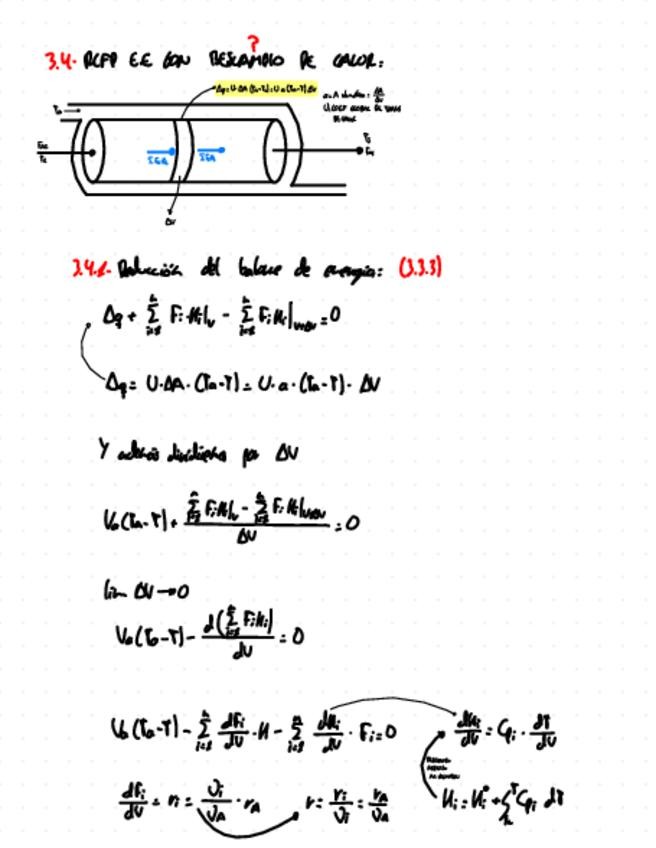 ?
3.4.- RCFP E.E CON DESCAMBIO DE CALOR:
Δq = U·ΔA (Ta-T) = U·a (Ta-T) ΔV
Ta
ΣFiHi ΣFiHi
ΔV
3.4.1.- Deducción del balance de energía: (3.3.3)
Δq + Σ_{i=1}^{n} Fi·Hi|_V - Σ_{i=1}^{n} Fi Hi|_{V+ΔV} = 0
Δq = U·ΔA·(Ta-T) = U·a·(Ta-T)·ΔV
Y además dividimos por ΔV
Ua(Ta-T) + (Σ_{i=1}^{n} Fi·Hi|_V - Σ_{i=1}^{n} Fi·Hi|_{V+ΔV}) / ΔV = 0
lim ΔV→0
Ua(Ta-T) - d(Σ_{i=1}^{n} FiHi) / dV = 0
Ua(Ta-T) - Σ_{i=1}^{n} dFi/dV · H - Σ_{i=1}^{n} dHi/dV · Fi = 0 dHi/dV = Cpi · dT/dV
dFi/dV = ri = νi/νA · rA r = ri/νi = rA/νA Hi = Hi° + ∫_{TR}^{T} Cpi dT